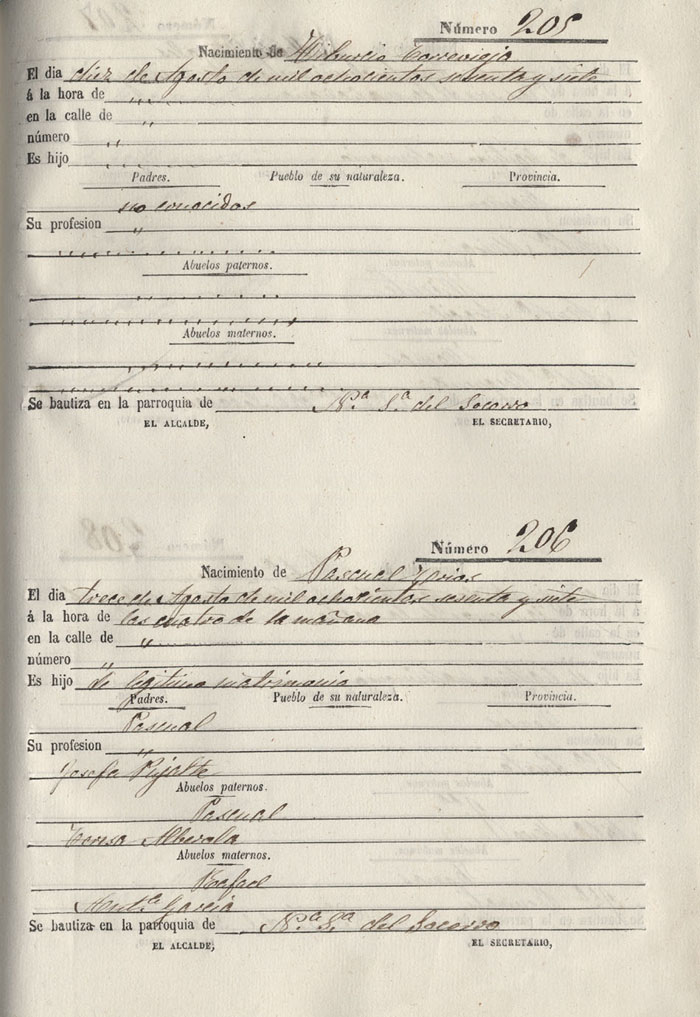 Número 205
Nacimiento de Tiburcio Torrevieja
El dia diez de Agosto de mil ochocientos sesenta y siete
á la hora de „
en la calle de „
número „
Es hijo
Padres. Pueblo de su naturaleza. Provincia.
no conocidos
Su profesion „
Abuelos paternos.
Abuelos maternos.
Se bautiza en la parroquia de Nª Sª del Socorro
EL ALCALDE, EL SECRETARIO,
Número 206
Nacimiento de Pascual
El dia trece de Agosto de mil ochocientos sesenta y siete
á la hora de las cuatro de la mañana
en la calle de „
número „
Es hijo de legitimo matrimonio
Padres. Pueblo de su naturaleza. Provincia.
Pascual
Su profesion „
Josefa
Abuelos paternos.
Pascual
Teresa Alberola
Abuelos maternos.
Rafael
Antª Garcia
Se bautiza en la parroquia de Nª Sª del Socorro
EL ALCALDE, EL SECRETARIO,